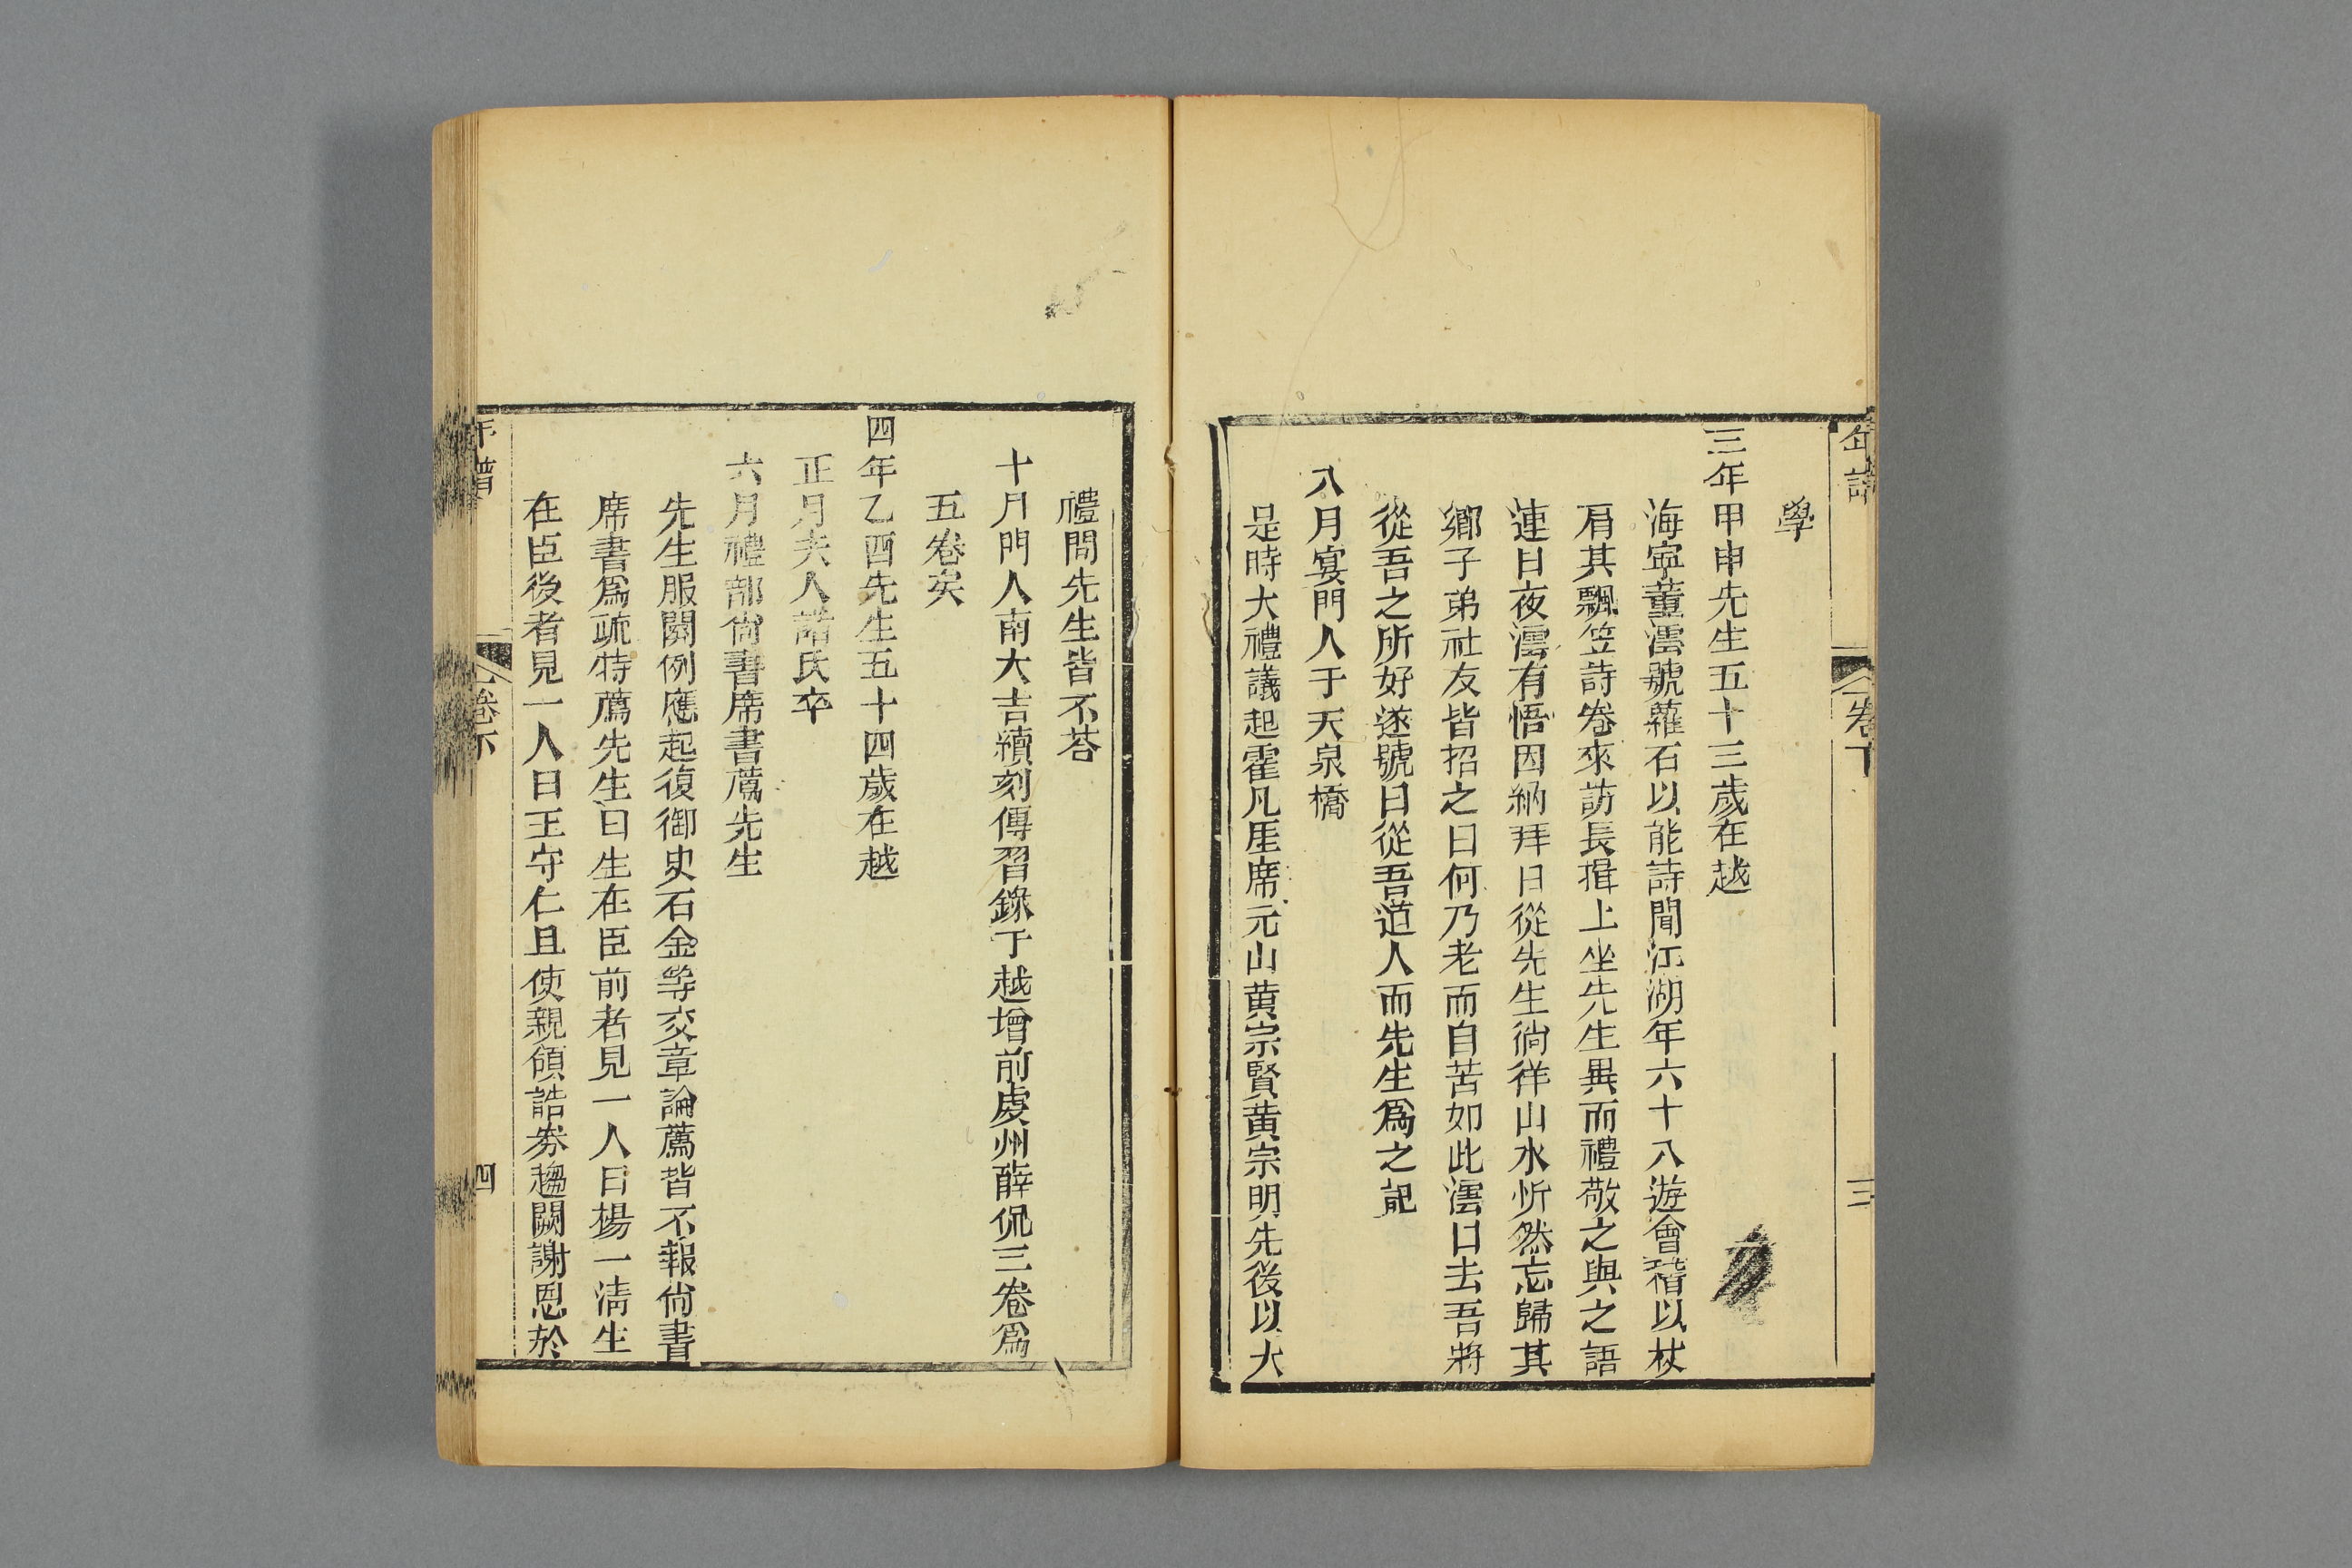 年譜 卷下 三
學
三年甲申先生五十三歲在越
海寧董澐號蘿石以能詩聞江湖年六十八遊會稽以杖
肩其瓢笠詩卷來訪長揖上坐先生異而禮敬之與之語
連日夜澐有悟因納拜日從先生徜徉山水忻然忘歸其
鄉子弟社友皆招之曰何乃老而自苦如此澐曰去吾將
從吾之所好遂號曰從吾道人而先生爲之記
八月宴門人于天泉橋
是時大禮議起霍凡厓席元山黄宗賢黄宗明先後以大
禮問先生皆不荅
十月門人南大吉續刻傳習錄于越增前虔州薛侃三卷爲
五卷矣
四年乙酉先生五十四歲在越
正月夫人諸氏卒
六月禮部尙書席書薦先生
先生服闋例應起復御史石金等交章論薦皆不報尙書
席書爲疏特薦先生曰生在臣前者見一人曰楊一淸生
在臣後者見一人曰王守仁且使親領誥券趨闕謝恩於
年譜 卷下 四